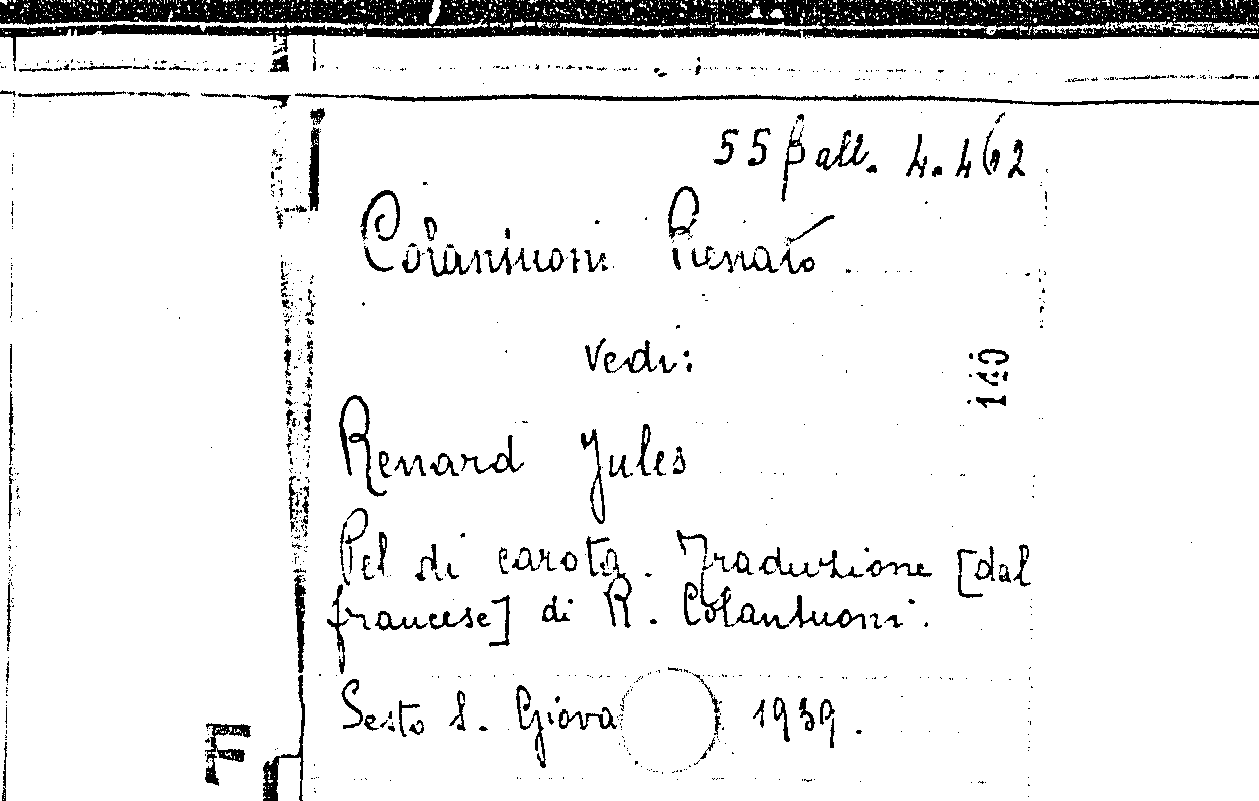 55 β all. 4.462
Colantuoni Renato.
Vedi:
140
Renard Jules
Pel di carota. Traduzione [dal
francese] di R. Colantuoni.
Sesto S. Giova 1939.
F